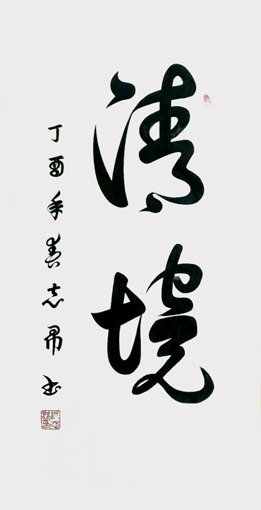 清境
丁酉年春志书